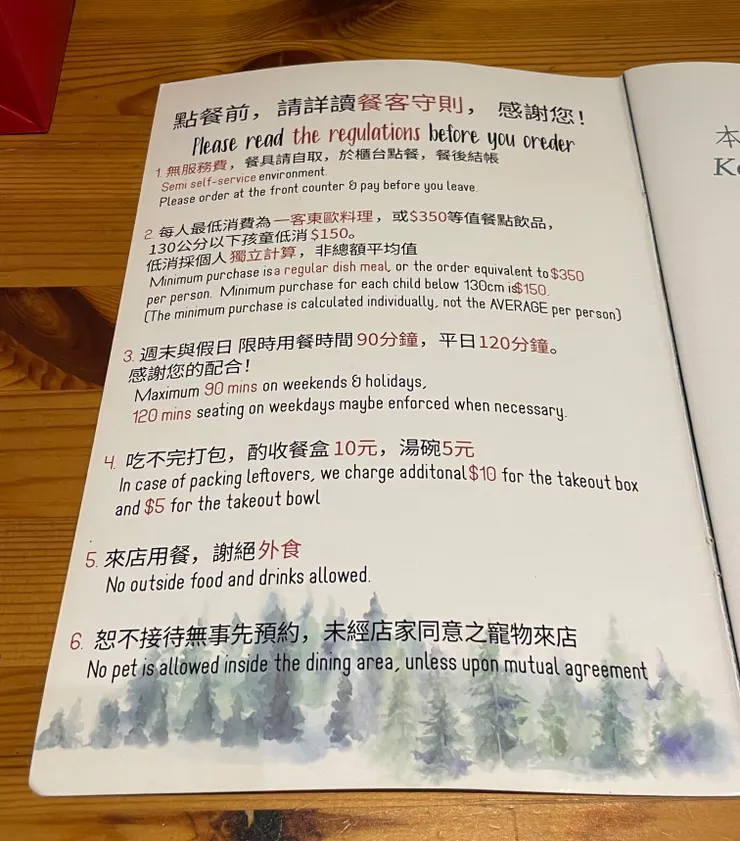 點餐前，請詳讀餐客守則，感謝您！
Please read the regulations before you oreder
1. 無服務費，餐具請自取，於櫃台點餐，餐後結帳
Semi self-service environment.
Please order at the front counter & pay before you leave.
2. 每人最低消費為一客東歐料理，或$350等值餐點飲品，
130公分以下孩童低消$150。
低消採個人獨立計算，非總額平均值
Minimum purchase is a regular dish meal, or the order equivalent to $350
per person. Minimum purchase for each child below 130cm is $150.
(The minimum purchase is calculated individually, not the AVERAGE per person)
3. 週末與假日 限時用餐時間 90分鐘，平日120分鐘。
感謝您的配合！
Maximum 90 mins on weekends & holidays,
120 mins seating on weekdays maybe enforced when necessary.
4. 吃不完打包，酌收餐盒 10元，湯碗5元
In case of packing leftovers, we charge additonal $10 for the takeout box
and $5 for the takeout bowl
5. 來店用餐，謝絕外食
No outside food and drinks allowed.
6. 恕不接待無事先預約，未經店家同意之寵物來店
No pet is allowed inside the dining area, unless upon mutual agreement
本